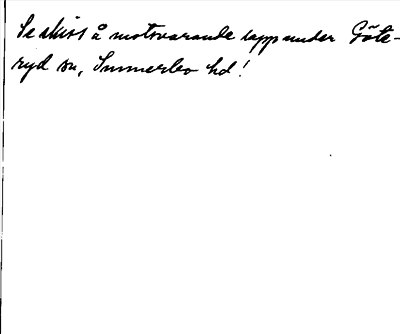 Se skiss å motsvarande lapp under Göte-
ryd sn, Sunnerbo hd!